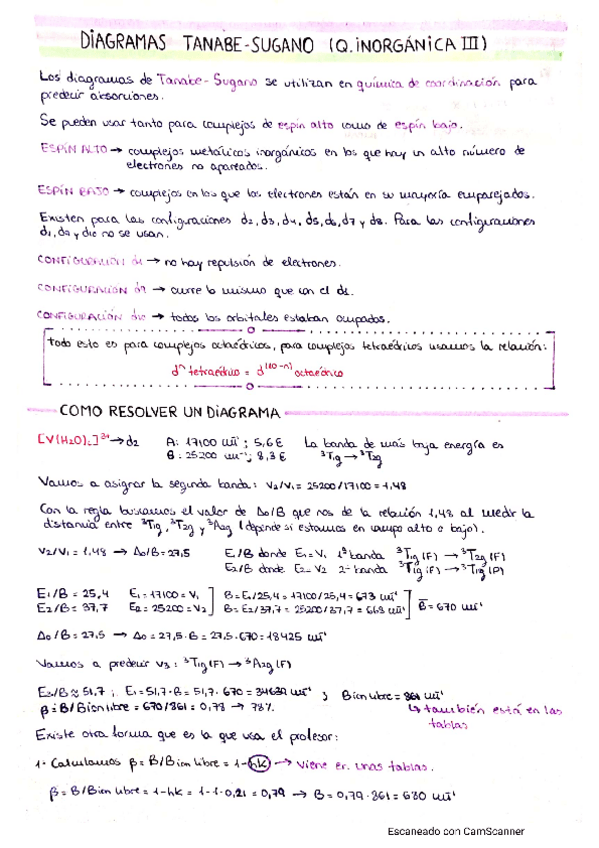 DIAGRAMAS TANABE-SUGANO (Q. INORGÁNICA III)
Los diagramas de Tanabe-Sugano se utilizan en química de coordinación para
predecir absorciones.
Se pueden usar tanto para complejos de espín alto como de espín bajo.
ESPÍN ALTO → complejos metálicos inorgánicos en los que hay un alto número de
electrones no apareados.
ESPÍN BAJO → complejos en los que los electrones están en su mayoría emparejados.
Existen para las configuraciones d2, d3, d4, d5, d6, d7 y d8. Para las configuraciones
d1, d9 y d10 no se usan.
CONFIGURACIÓN d1 → no hay repulsión de electrones.
CONFIGURACIÓN d9 → ocurre lo mismo que con el d1.
CONFIGURACIÓN d10 → todos los orbitales estaban ocupados.
Todo esto es para complejos octaédricos, para complejos tetraédricos usamos la relación:
dⁿ tetraédrico = d⁽¹⁰⁻ⁿ⁾ octaédrico
COMO RESOLVER UN DIAGRAMA
[V(H2O)6]³⁺ → d2 A: 17100 cm⁻¹; 5,6 E La banda de más baja energía es
B: 25200 cm⁻¹; 8,3 E ³T1g → ³T2g
Vamos a asignar la segunda banda: V2/V1 = 25200/17100 = 1,48
Con la regla buscamos el valor de Δo/B que nos de la relación 1,48 al medir la
distancia entre ³T1g, ³T2g y ³A2g (depende si estamos en campo alto o bajo).
V2/V1 = 1,48 → Δo/B = 27,5 E1/B donde E1 = V1 1ª banda ³T1g (F) → ³T2g (F)
E2/B donde E2 = V2 2ª banda ³T1g (F) → ³T1g (P)
E1/B = 25,4 E1 = 17100 = V1 B = E1/25,4 = 17100/25,4 = 673 cm⁻¹
E2/B = 37,7 E2 = 25200 = V2 B = E2/37,7 = 25200/37,7 = 668 cm⁻¹ B̄ = 670 cm⁻¹
Δo/B = 27,5 → Δo = 27,5·B = 27,5·670 = 18425 cm⁻¹
Vamos a predecir V3: ³T1g (F) → ³A2g (F)
E3/B ≈ 51,7; E1 = 51,7·B = 51,7·670 = 34639 cm⁻¹ ; B ion libre = 861 cm⁻¹
β = B/B ion libre = 670/861 = 0,78 → 78% ↳ también está en las
tablas
Existe otra forma que es la que usa el profesor:
1· Calculamos β = B/B ion libre = 1-hk → viene en unas tablas.
β = B/B ion libre = 1-hk = 1-1·0,21 = 0,79 → B = 0,79·861 = 680 cm⁻¹
Escaneado con CamScanner